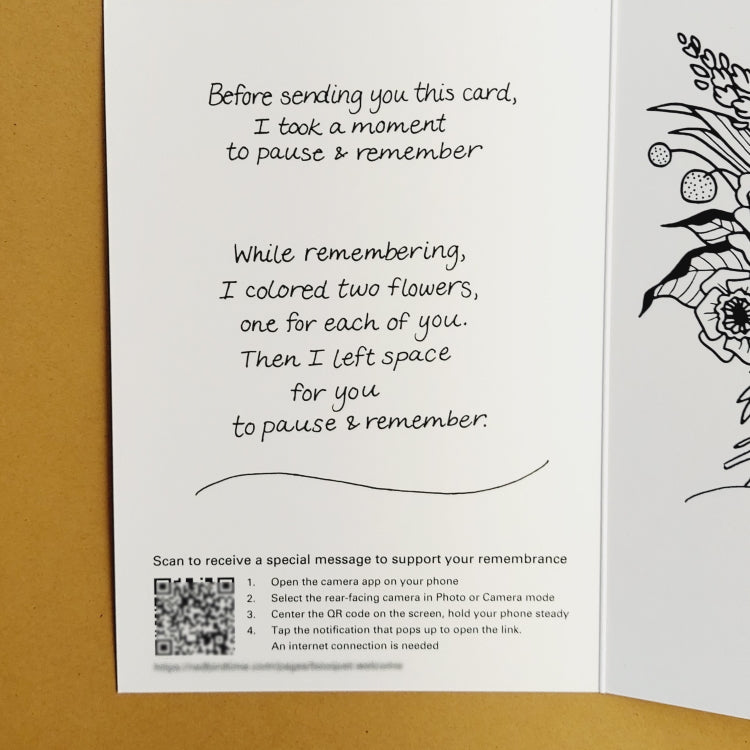 Before sending you this card,
I took a moment
to pause & remember
While remembering,
I colored two flowers,
one for each of you.
Then I left space
for you
to pause & remember.
Scan to receive a special message to support your remembrance
1. Open the camera app on your phone
2. Select the rear-facing camera in Photo or Camera mode
3. Center the QR code on the screen, hold your phone steady
4. Tap the notification that pops up to open the link.
An internet connection is needed